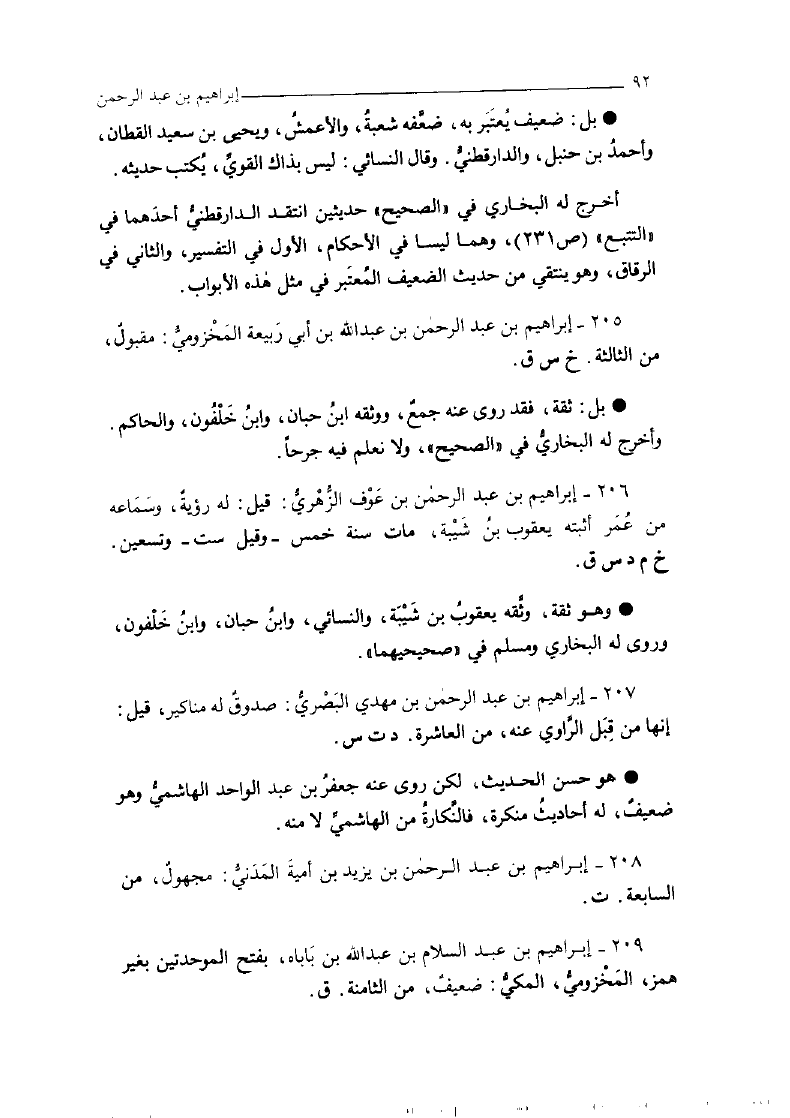 ٩٢ إبراهيم بن عبد الرحمن
● بل: ضعيف يُعتَبر به، ضعَّفه شعبةُ، والأعمشُ، ويحيى بن سعيد القطان،
وأحمدُ بن حنبل، والدارقطنيُّ. وقال النسائي: ليس بذاك القويِّ، يُكتب حديثه.
أخرج له البخاري في «الصحيح» حديثين انتقد الدارقطنيُّ أحدَهما في
«التتبع» (ص٢٣١)، وهما ليسا في الأحكام، الأول في التفسير، والثاني في
الرقاق، وهو ينتقي من حديث الضعيف المُعتَبر في مثل هٰذه الأبواب.
٢٠٥ ـ إبراهيم بن عبد الرحمٰن بن عبدالله بن أبي رَبيعة المَخْزوميُّ: مقبولٌ،
من الثالثة. خ س ق.
● بل: ثقة، فقد روى عنه جمعٌ، ووثقه ابنُ حبان، وابنُ خَلْفُون، والحاكم.
وأخرج له البخاريُّ في «الصحيح»، ولا نعلم فيه جرحاً.
٢٠٦ ـ إبراهيم بن عبد الرحمٰن بن عَوْف الزُّهْريُّ: قيل: له رؤيةٌ، وسَمَاعه
من عُمَر أثبته يعقوب بنُ شَيْبة، مات سنة خمس ـ وقيل ست ـ وتسعين.
خ م د س ق.
● وهو ثقة، وثَّقه يعقوبُ بن شَيْبَة، والنسائي، وابنُ حبان، وابنُ خَلْفون،
وروى له البخاري ومسلم في «صحيحيهما».
٢٠٧ ـ إبراهيم بن عبد الرحمٰن بن مهدي البَصْريُّ: صدوقٌ له مناكير، قيل:
إنها من قِبَل الرَّاوي عنه، من العاشرة. د ت س.
● هو حسن الحديث، لكن روى عنه جعفرُ بن عبد الواحد الهاشميُّ وهو
ضعيفٌ، له أحاديثُ منكرة، فالنَّكارةُ من الهاشميِّ لا منه.
٢٠٨ ـ إبراهيم بن عبد الرحمٰن بن يزيد بن أميةَ المَدَنيُّ: مجهولٌ، من
السابعة. ت.
٢٠٩ ـ إبراهيم بن عبد السلام بن عبدالله بن بَاباه، بفتح الموحدتين بغير
همز، المَخْزوميُّ، المكيُّ: ضعيفٌ، من الثامنة. ق.